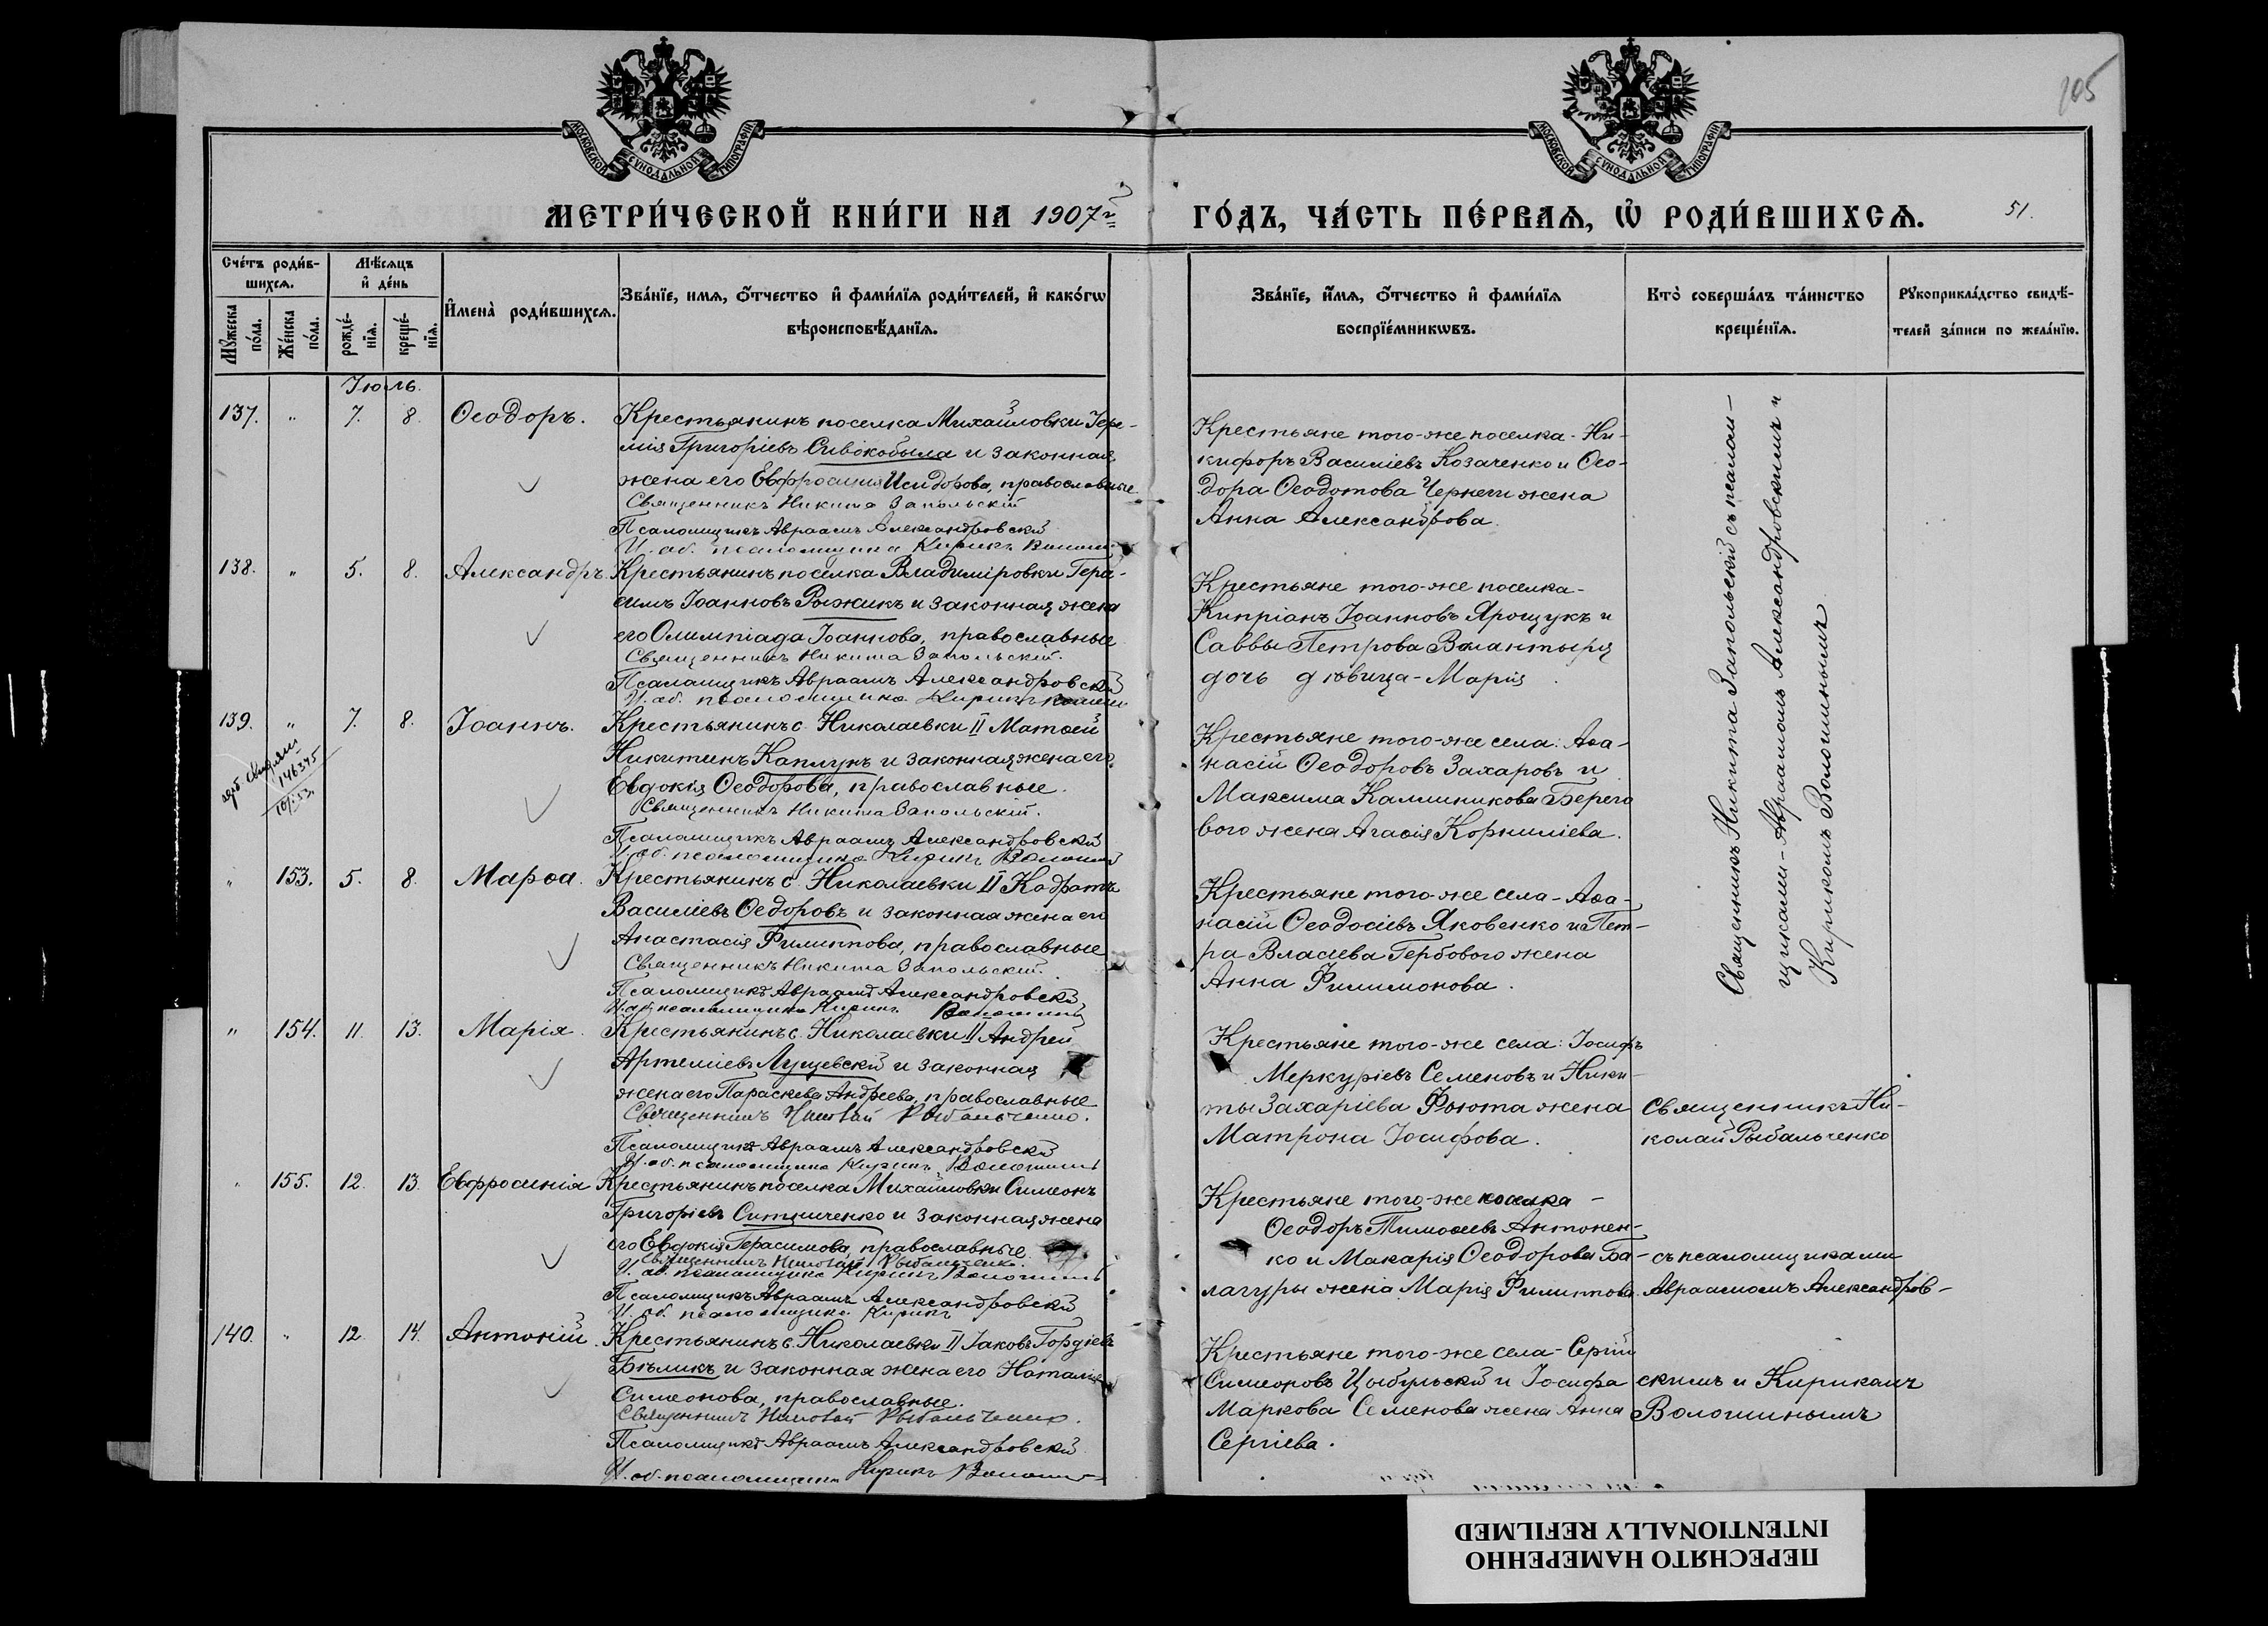 МОСКОВСКОЙ СѴНОДАЛЬНОЙ ТИПОГРАФІИ
МОСКОВСКОЙ СѴНОДАЛЬНОЙ ТИПОГРАФІИ
105
МЕТРИ́ЧЕСКОЙ КНИ́ГИ НА 1907 г. ГО́ДЪ, ЧА́СТЬ ПЕ́РВАѦ, Ѡ҆ РОДИ́ВШИХСѦ.
51.
Сче́тъ роди́в-
шихсѧ.
Мꙋжеска по́ла.
Же́нска по́ла.
Мѣ́сѧцъ
и҆ де́нь
рожде́-нїѧ.
креще́-нїѧ.
И҆мена̀ роди́вшихсѧ.
Зва́нїе, имѧ, ѻ҆́тчество и҆ фами́лїѧ роди́телей, и҆ како́гѡ
вѣроисповѣ́данїѧ.
Зва́нїе, и҆́мѧ, ѻ҆́тчество и҆ фами́лїѧ
воспрїе́мникѡвъ.
Кто̀ соверша́лъ та́инство
креще́нїѧ.
Рꙋкоприкла́дство свидѣ́-
телей за́писи по жела́нїю.
Іюль.
137. " 7. 8. Ѳеодоръ.
Крестьянинъ поселка Михайловки Іере-
мія Григоріевъ Сивокобыла и законная
жена его Евфросинія Исидорова, православные
Священникъ Никита Запольскій
Псаломщикъ Авраамъ Александровскій
И. об. псаломщика Кирикъ
Крестьяне того-же поселка - Ни-
кифоръ Василіевъ Козаченко и Ѳео-
дора Ѳеодотова Чернеги жена
Анна Александрова.
Священникъ Никита Запольскій съ псалом-
щиками - Авраамомъ Александровскимъ и
Кирикомъ Волошинымъ
138. " 5. 8. Александръ.
Крестьянинъ поселка Владиміровки Гера-
симъ Іоанновъ Рыжикъ и законная жена
его Олимпіада Іоаннова, православные
Священникъ Никита Запольскій.
Псаломщикъ Авраамъ Александровскій
И. об. псаломщика Кирикъ
Крестьяне того-же поселка -
Кипріанъ Іоанновъ Ярощукъ и
Саввы Петрова
дочь дѣвица - Марія.
139. " 7. 8. Іоаннъ.
146345
Крестьянинъ с. Николаевки II Матѳей
Никитинъ Каплунъ и законная жена его
Евдокія Ѳеодорова, православные.
Священникъ Никита Запольскій.
Псаломщикъ Авраамъ Александровскій
И. об. псаломщика Кирикъ Волошинъ
Крестьяне того-же села: Аѳа-
насій Ѳеодоровъ Захаровъ и
Максима Каллиникова Берего
вого жена Агаѳія Корниліева.
" 153. 5. 8. Марѳа.
Крестьянинъ с. Николаевки II Кодратъ
Василіевъ Ѳедоровъ и законная жена его
Анастасія Филиппова, православные
Священникъ Никита Запольскій.
Псаломщикъ Авраамъ Александровскій
И. об. псаломщика Кирикъ Волошинъ
Крестьяне того-же села - Аѳа-
насій Ѳеодосіевъ Яковенко и Пет-
ра Власіева Гербового жена
Анна Филимонова.
" 154. 11. 13. Марія.
Крестьянинъ с. Николаевки II Андрей
Артеміевъ Лущевскій и законная
жена его Параскева Андреева, православные
Священникъ Николай Рыбальченко.
Псаломщикъ Авраамъ Александровскій
И. об. псаломщика Кирикъ Волошинъ
Крестьяне того-же села: Іосифъ
Меркуріевъ Семеновъ и Ники-
ты Захаріева жена
Матрона Іосифова.
Священникъ Ни-
колай Рыбальченко
" 155. 12. 13. Евфросинія
Крестьянинъ поселка Михайловки Симеонъ
Григоріевъ Ситниченко и законная жена
его Евдокія Герасимова, православные
Священникъ Николай Рыбальченко.
И. об. псаломщика Кирикъ Волошинъ
Псаломщикъ Авраамъ Александровскій
И. об. псаломщика Кирикъ
Крестьяне того-же поселка -
Ѳеодоръ Тимоѳеевъ Антонен-
ко и Макарія Ѳеодорова Ба-
лагуры жена Марія Филиппова.
съ псаломщиками
Авраамомъ Александров-
140. " 12. 14. Антоній.
Крестьянинъ с. Николаевки II Іаковъ Гордіевъ
Бѣликъ и законная жена его Наталія
Симеонова, православные.
Священникъ Николай Рыбальченко.
Псаломщикъ Авраамъ Александровскій
И. об. псаломщика Кирикъ Волошинъ
Крестьяне того-же села - Сергій
Симеоновъ Цыбульскій и Іосифа
Маркова Семенова жена Анна
Сергіева.
скимъ и Кирикомъ
Волошинымъ
ПЕРЕСНЯТО НАМЕРЕННО
INTENTIONALLY REFILMED